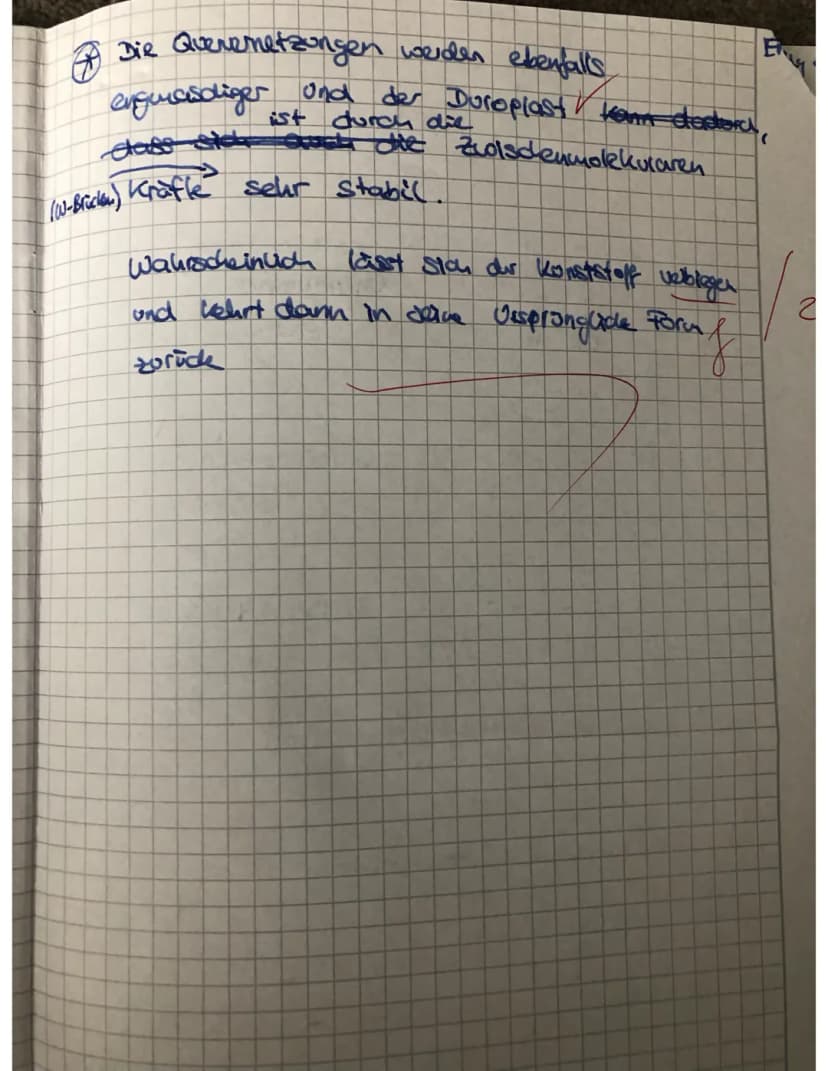 Die Quervernetzungen werden ebenfalls
engmaschiger und der Duroplast ✓ kann dadurch,
ist durch die
dass sich auch die Zwischenmolekularen
(W-Brücken) Kräfte sehr stabil.
Wahrscheinlich lässt sich der Kunststoff verbiegen
und kehrt dann in seine Ursprüngliche Form f
zurück